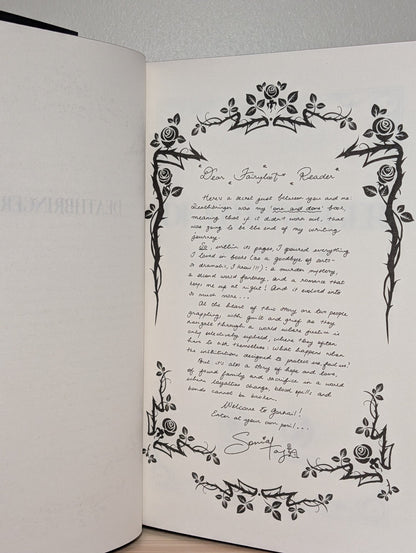 DEATHBRINGER
"Dear "Fairyloot" Reader"
Here's a secret just between you and me:
Deathbringer was my 'one and done' book,
meaning that if it didn't work out, that
was going to be the end of my writing
journey.
So, within its pages, I poured everything
I loved in books (as a goodbye of sorts-
so dramatic, I know!!!): a murder mystery,
a blood weird fantasy, and a romance that
keeps me up at night! And it evolved into
so much more...
At the heart of this story are two people
grappling with guilt and grief as they
navigate through a world where justice is
only selectively upheld, where they often
have to ask themselves: What happens when
the institutions designed to protect us, fail us?
But it's also a story of hope and love,
of found family and sacrifice in a world
where loyalties change, blood spills and
bonds cannot be broken.
Welcome to
Enter at your own peril...
Sonia Tagliareni